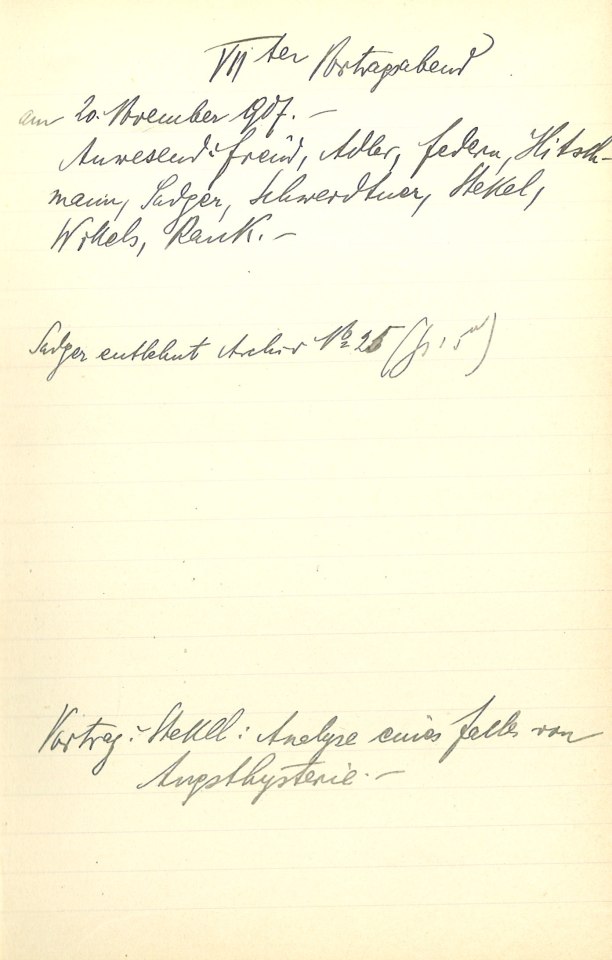 VIIter Vortragsabend
am 20. November 907. –
Anwesend: Freud, Adler, Federn, Hitsch-
mann, Sadger, Schwerdtner, Stekel,
Wittels, Rank. –
Sadger entlehnt Archiv No 25
Vortrag: Stekel: Analyse eines Falles von
Angsthysterie. –